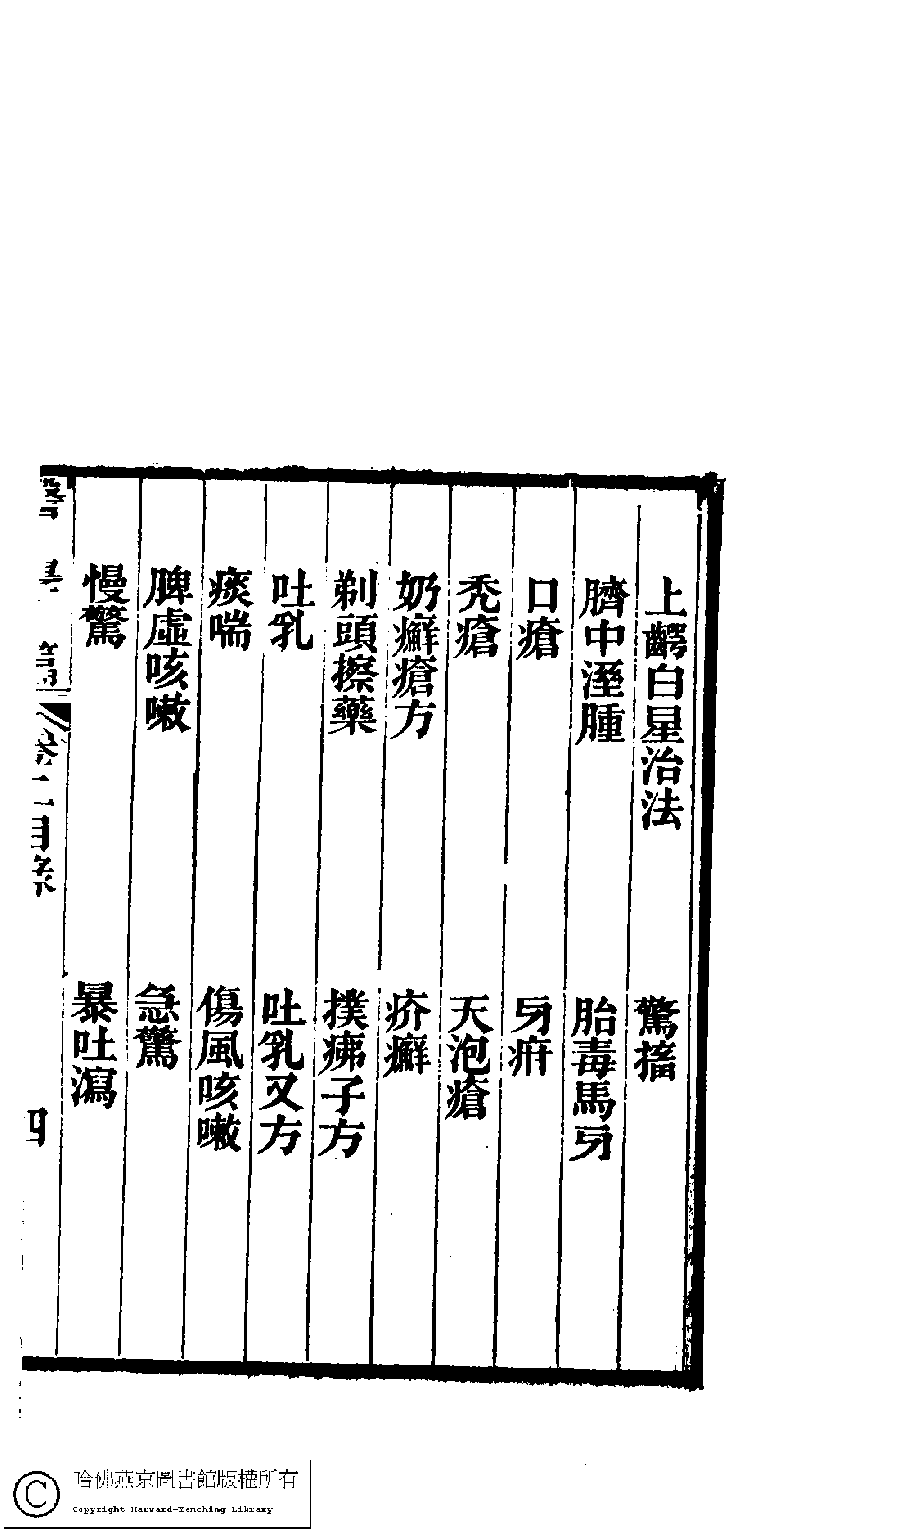 上齶白星治法　驚搐
臍中溼腫　胎毒馬牙
口瘡　牙疳
禿瘡　天泡瘡
奶癬瘡方　疥癬
剃頭擦藥　撲痱子方
吐乳　吐乳又方
痰喘　傷風咳嗽
脾虛咳嗽　急驚
慢驚　暴吐瀉
卷二目录 四
哈佛燕京圖書館版權所有
Copyright Harvard-Yenching Library